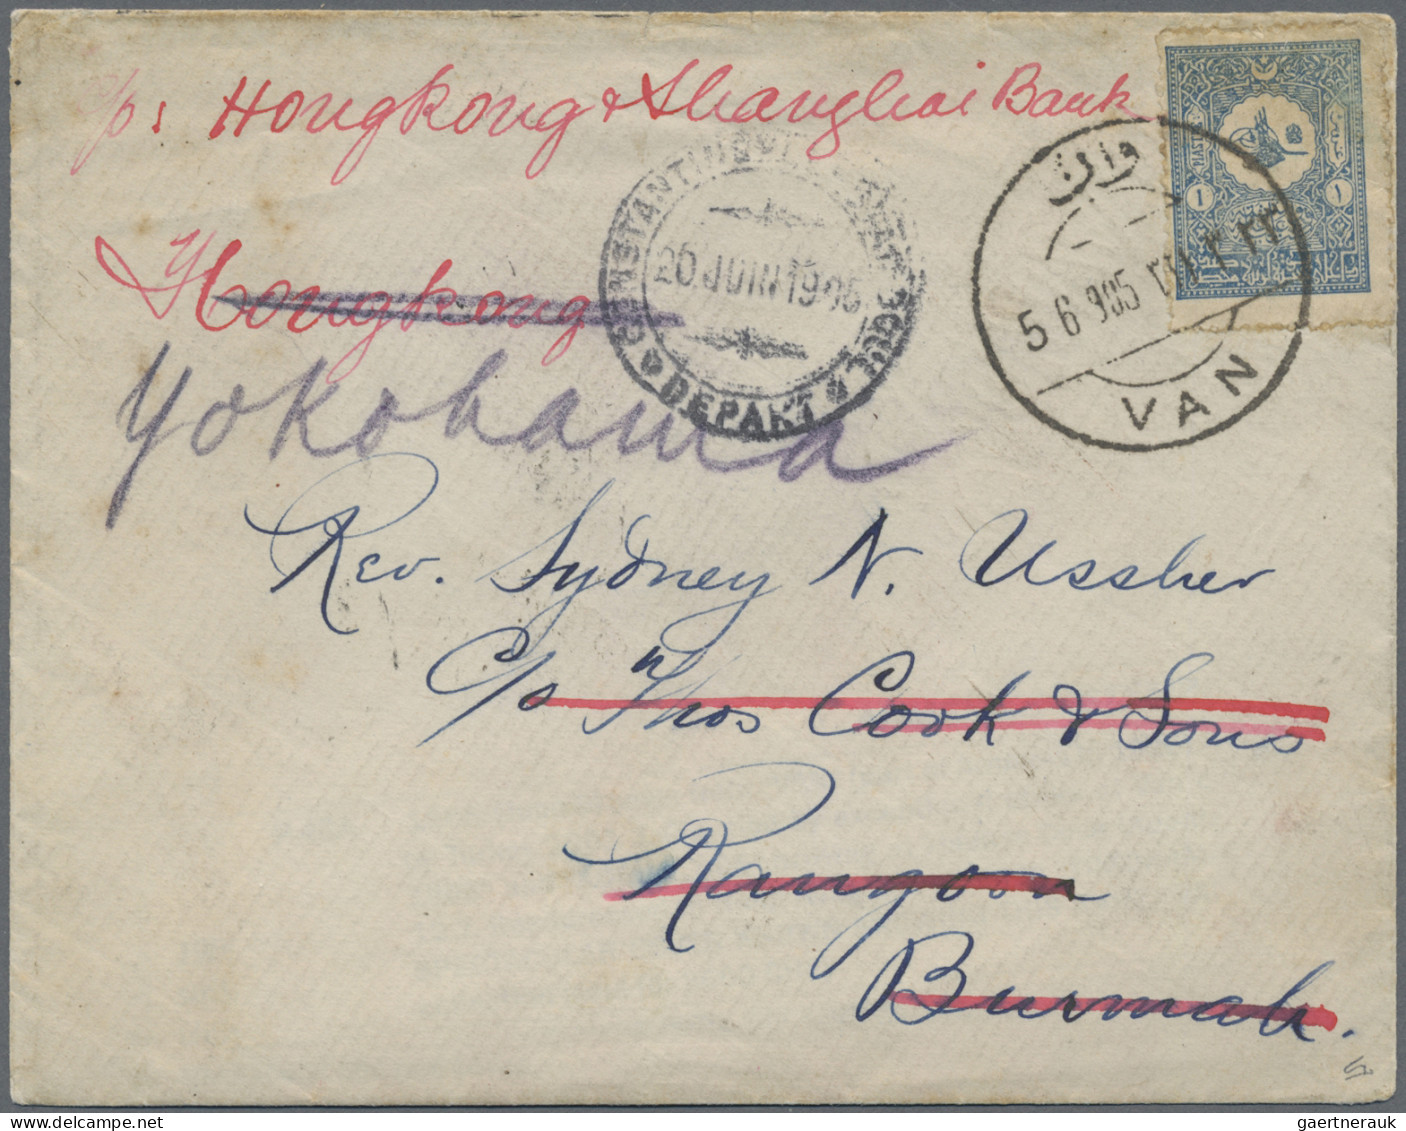 c/o: Hongkong & Shanghai Bank
Hongkong
Yokohama
CONSTANTINOPLE
20 JUIN 1905
DEPART
وان
5 6 905
VAN
1 1
١
Rev. Sydney N. Ussher
C/o Thos Cook & Sons
Rangoon
Burmah.
gaertnerauk